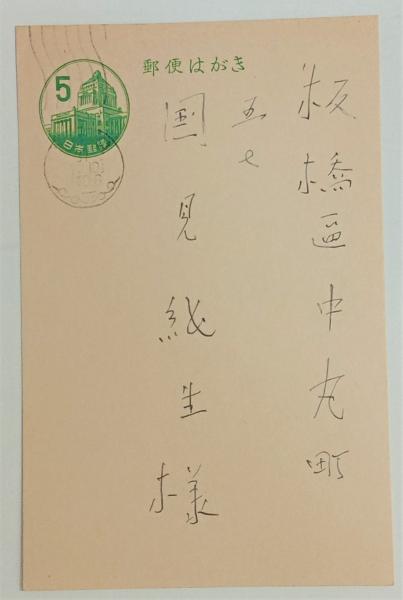 郵便はがき
5
日本郵便
板橋區中丸町
五七
国見純生様